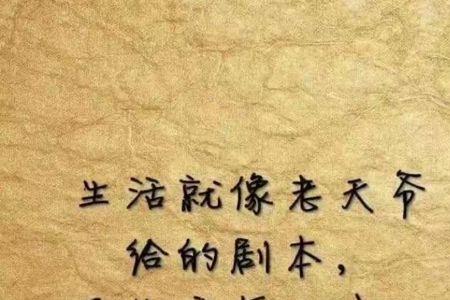 生活就像老天爷
给的剧本，